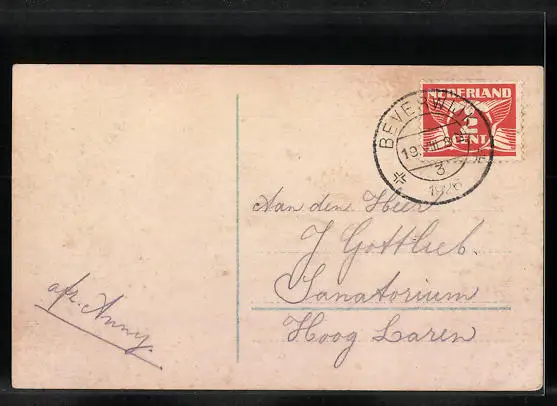 NEDERLAND
2
CENT
BEVERWIJK
19.VIII.8
3
1926
Aan den Heer
J Gottlieb.
Sanatorium
Hoog Laren
afz. Anny.